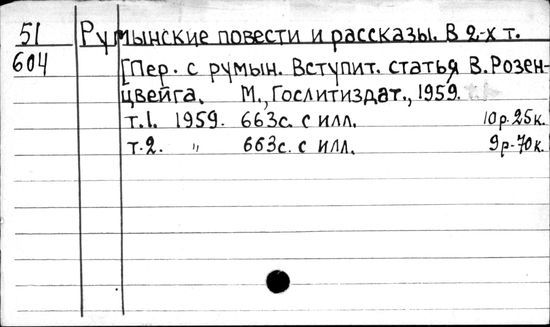 51 Румынские повести и рассказы. В 2-х т.
604 [Пер. с румын. Вступит. статья В. Розен-
цвейга. М., Гослитиздат., 1959.
т.1. 1959. 663с. с илл. 10р.25к.
т.2. " 663с. с илл. 9р-70к.